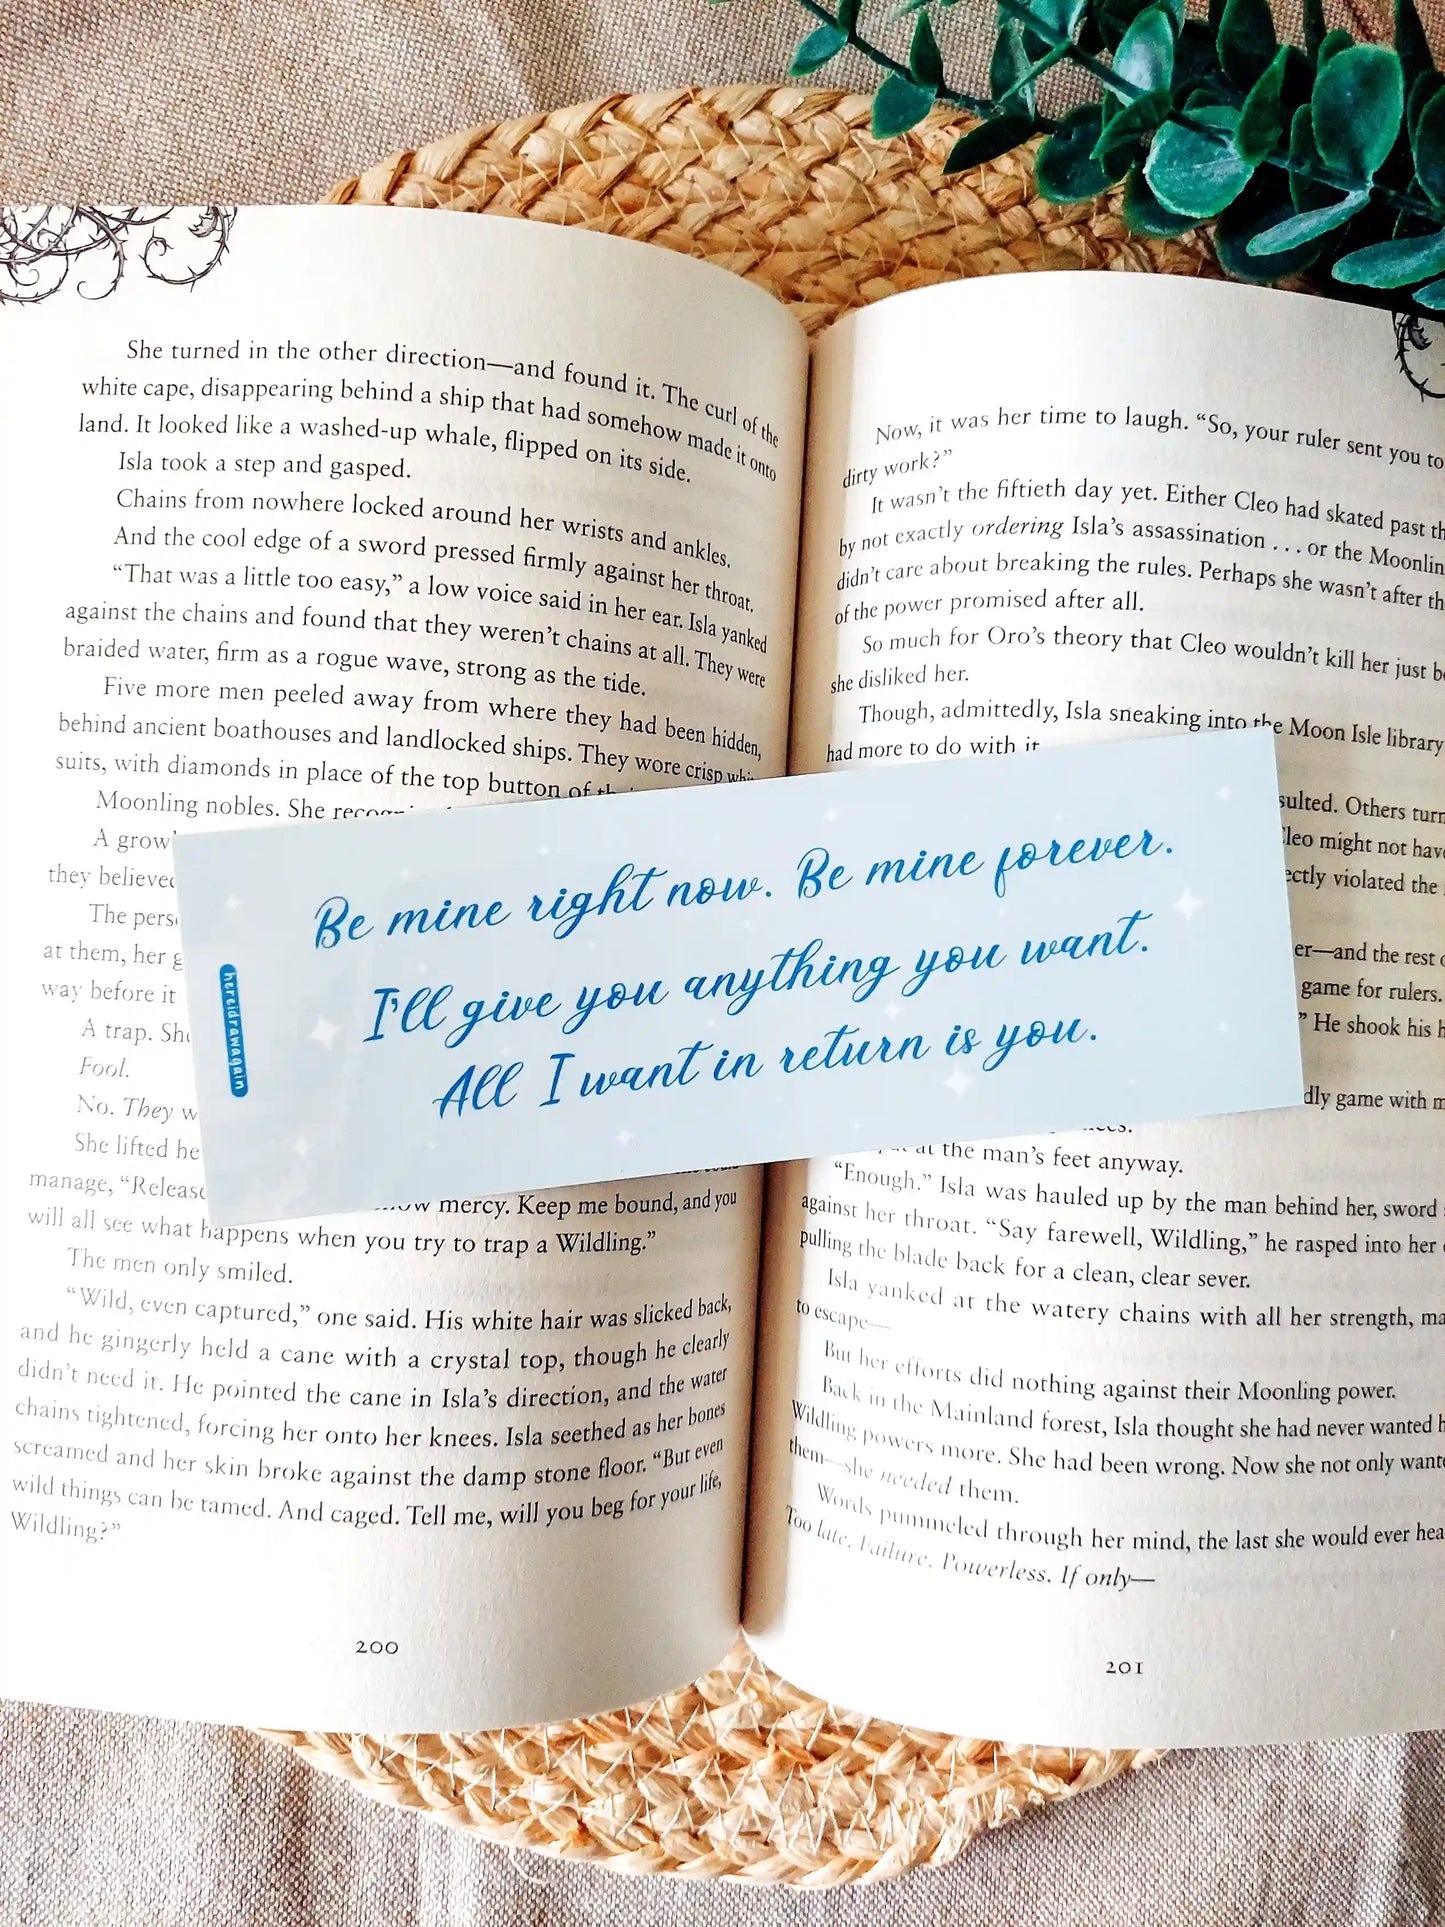 She turned in the other direction—and found it. The curl of the
white cape, disappearing behind a ship that had somehow made it onto
land. It looked like a washed-up whale, flipped on its side.
Isla took a step and gasped.
Chains from nowhere locked around her wrists and ankles.
And the cool edge of a sword pressed firmly against her throat.
“That was a little too easy,” a low voice said in her ear. Isla yanked
against the chains and found that they weren’t chains at all. They were
braided water, firm as a rogue wave, strong as the tide.
Five more men peeled away from where they had been hidden,
behind ancient boathouses and landlocked ships. They wore crisp
suits, with diamonds in place of the top button of
Moonling nobles. She
A
they believed
The
at them, her
way before it
A trap. She
Fool.
No. They
She lifted
manage, “Release
mercy. Keep me bound, and you
will all see what happens when you try to trap a Wildling.”
The men only smiled.
“Wild, even captured,” one said. His white hair was slicked back,
and he gingerly held a cane with a crystal top, though he clearly
didn’t need it. He pointed the cane in Isla’s direction, and the water
chains tightened, forcing her onto her knees. Isla seethed as her bones
screamed and her skin broke against the damp stone floor. “But even
wild things can be tamed. And caged. Tell me, will you beg for your life,
Wildling?”
200
hereidrawagain
Be mine right now. Be mine forever.
I'll give you anything you want.
All I want in return is you.
Now, it was her time to laugh. “So, your ruler sent you to
dirty work?”
It wasn’t the fiftieth day yet. Either Cleo had skated past
by not exactly ordering Isla’s assassination . . . or the
didn’t care about breaking the rules. Perhaps she wasn’t after
of the power promised after all.
So much for Oro’s theory that Cleo wouldn’t kill her just
she disliked her.
Though, admittedly, Isla sneaking into the Moon Isle library
had more to do with it
Others
Cleo might not have
violated the
and the rest
game for rulers.
” He shook his
game with
at the man’s feet anyway.
“Enough.” Isla was hauled up by the man behind her, sword
against her throat. “Say farewell, Wildling,” he rasped into her
pulling the blade back for a clean, clear sever.
Isla yanked at the watery chains with all her strength,
to escape—
But her efforts did nothing against their Moonling power.
Back in the Mainland forest, Isla thought she had never wanted
Wildling powers more. She had been wrong. Now she not only
them—she needed them.
Words pummeled through her mind, the last she would ever
Too late. Failure. Powerless. If only—
201